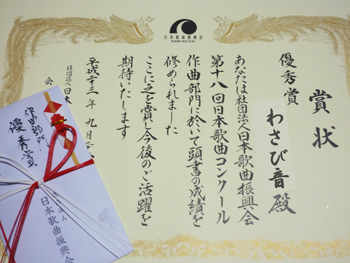 賞状
優秀賞
わさび音殿
あなたは社団法人日本歌曲振興会
第十八回日本歌曲コンクール
作曲部門に於いて頭書の成績を
修められました
ここに之を賞し今後のご活躍を
期待いたします
平成十三年九月
社団法人日本
会
作曲部門
優秀賞
法人
日本歌曲振興会